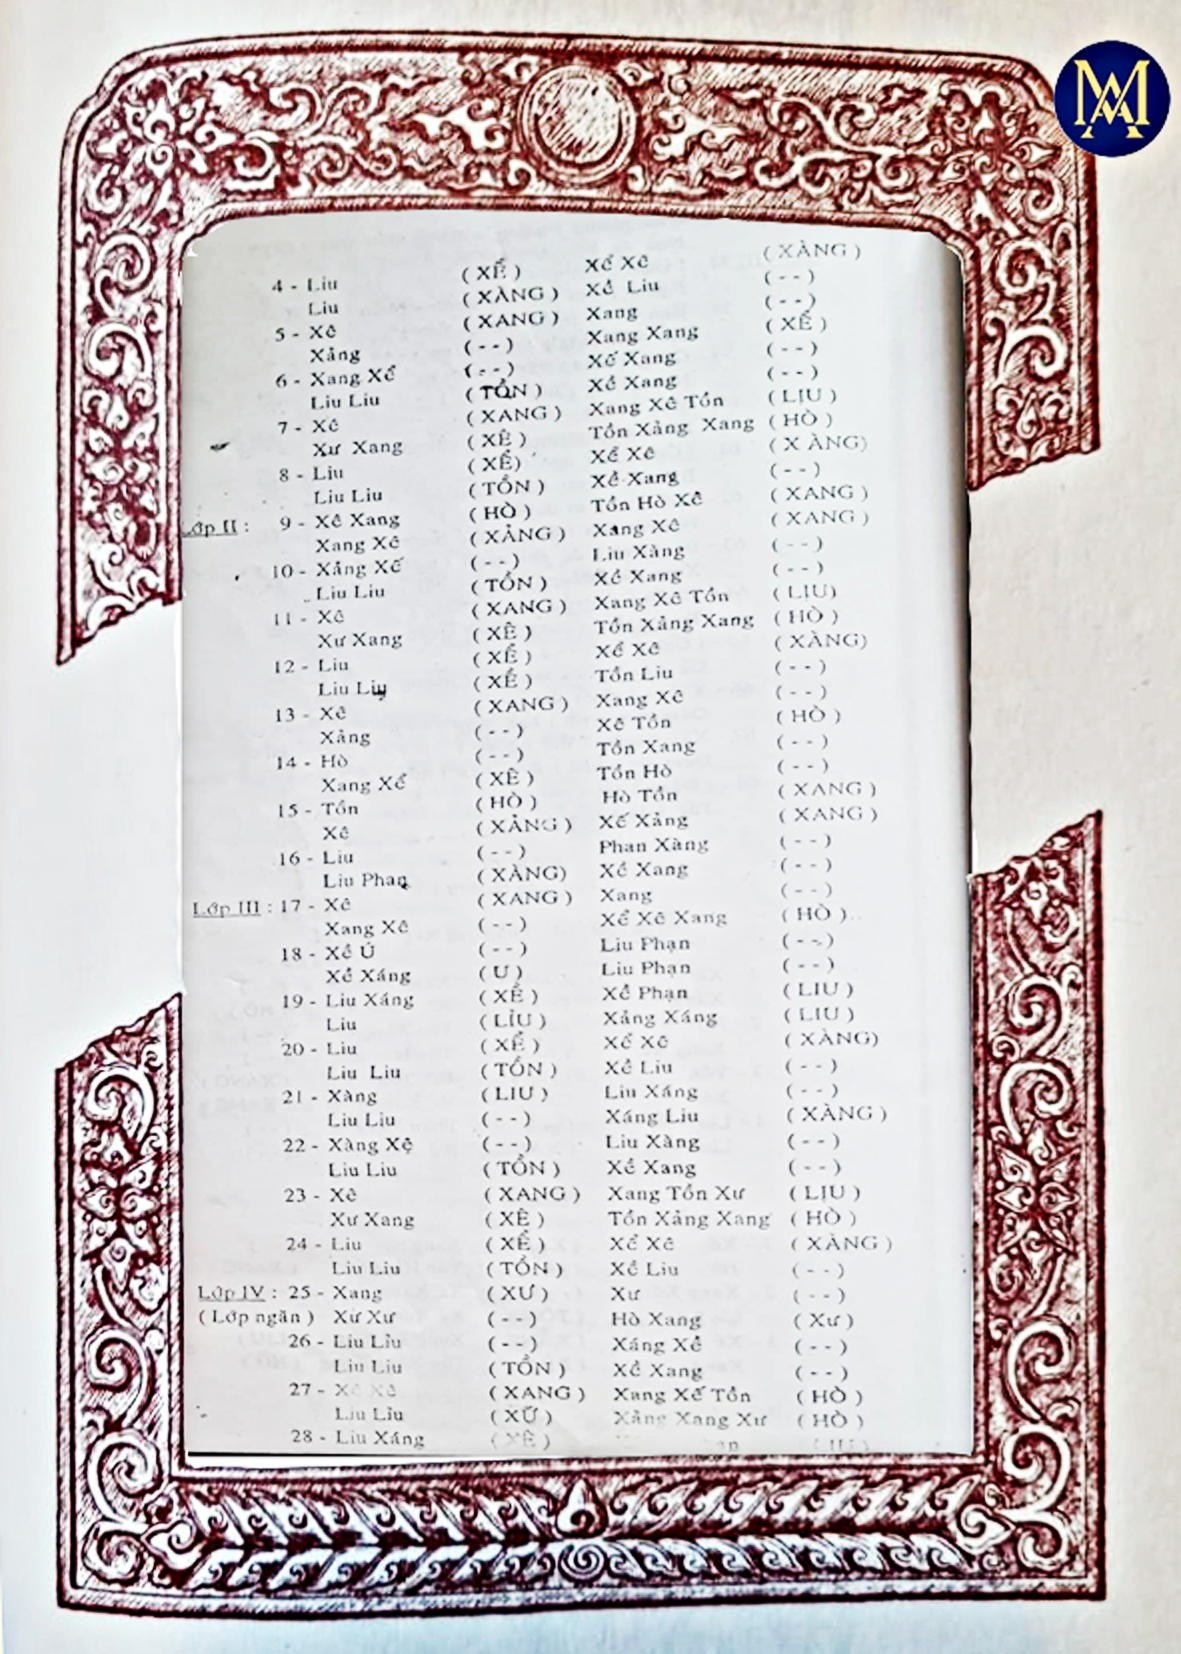 4 - Liu ( XỂ ) Xể Xê ( XÀNG )
Liu ( XÀNG ) Xề Liu ( - - )
5 - Xê ( XANG ) Xang ( - - )
Xảng ( - - ) Xang Xang ( XỂ )
6 - Xang Xể ( - - ) Xế Xang ( - - )
Liu Liu ( TỒN ) Xề Xang ( - - )
7 - Xê ( XANG ) Xang Xê Tồn ( LIU )
Xư Xang ( XÊ ) Tồn Xảng Xang ( HÒ )
8 - Liu ( XỂ ) Xể Xê ( XÀNG )
Liu Liu ( TỒN ) Xề Xang ( - - )
Lớp II : 9 - Xê Xang ( HÒ ) Tồn Hò Xê ( XANG )
Xang Xê ( XẢNG ) Xảng Xê ( XANG )
10 - Xảng Xế ( - - ) Liu Xàng ( - - )
Liu Liu ( TỒN ) Xề Xang ( - - )
11 - Xê ( XANG ) Xang Xê Tồn ( LIU )
Xư Xang ( XÊ ) Tồn Xảng Xang ( HÒ )
12 - Liu ( XỂ ) Xể Xê ( XÀNG )
Liu Liu ( XỀ ) Tồn Liu ( - - )
13 - Xê ( XANG ) Xang Xê ( - - )
Xảng ( - - ) Xê Tồn ( HÒ )
14 - Hò ( - - ) Tồn Xang ( - - )
Xang Xể ( XÊ ) Tồn Hò ( - - )
15 - Tồn ( HÒ ) Hò Tồn ( XANG )
Xê ( XẢNG ) Xế Xảng ( XANG )
16 - Liu ( - - ) Phan Xàng ( - - )
Liu Phan ( XÀNG ) Xề Xang ( - - )
Lớp III : 17 - Xê ( XANG ) Xang ( - - )
Xang Xê ( - - ) Xể Xê Xang ( HÒ )
18 - Xề Ú ( - - ) Liu Phạn ( - - )
Xề Xáng ( U ) Liu Phạn ( - - )
19 - Liu Xáng ( XỀ ) Xề Phạn ( LIU )
Liu ( LỈU ) Xảng Xáng ( LIU )
20 - Liu ( XỂ ) Xể Xê ( XÀNG )
Liu Liu ( TỒN ) Xề Liu ( - - )
21 - Xàng ( LIU ) Liu Xáng ( - - )
Liu Liu ( - - ) Xáng Liu ( XÀNG )
22 - Xàng Xệ ( - - ) Liu Xàng ( - - )
Liu Liu ( TỒN ) Xề Xang ( - - )
23 - Xê ( XANG ) Xang Tồn Xư ( LIU )
Xư Xang ( XÊ ) Tồn Xảng Xang ( HÒ )
24 - Liu ( XỂ ) Xể Xê ( XÀNG )
Liu Liu ( TỒN ) Xề Liu ( - - )
Lớp IV : 25 - Xang ( XƯ ) Xư ( - - )
( Lớp ngăn ) Xừ Xư ( - - ) Hò Xang ( Xư )
26 - Liu Lỉu ( - - ) Xáng Xề ( - - )
Liu Liu ( TỒN ) Xề Xang ( - - )
27 - Xê Xê ( XANG ) Xang Xế Tồn ( HÒ )
Liu Lỉu ( XỮ ) Xảng Xang Xư ( HÒ )
28 - Liu Xáng ( XÊ )